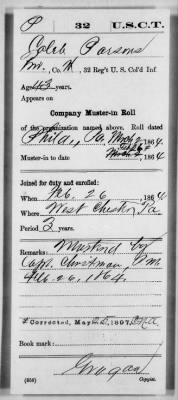 P 32 U.S.C.T.
Caleb Parsons
Pvt., Co. K, 32 Reg't U. S. Col'd Inf.
Age 43 years.
Appears on
Company Muster-in Roll
of the organization named above. Roll dated
Phila, Pa. Mch 7 1864.
Muster-in to date 1864
Joined for duty and enrolled:
When Feb. 26, 1864
Where West Chester, Pa.
Period 3 years.
Remarks: Mustered by
Capt. Christman,
Feb. 26, 1864.
Corrected, May 1897
Book mark:
Grogan
(356) Copyist.